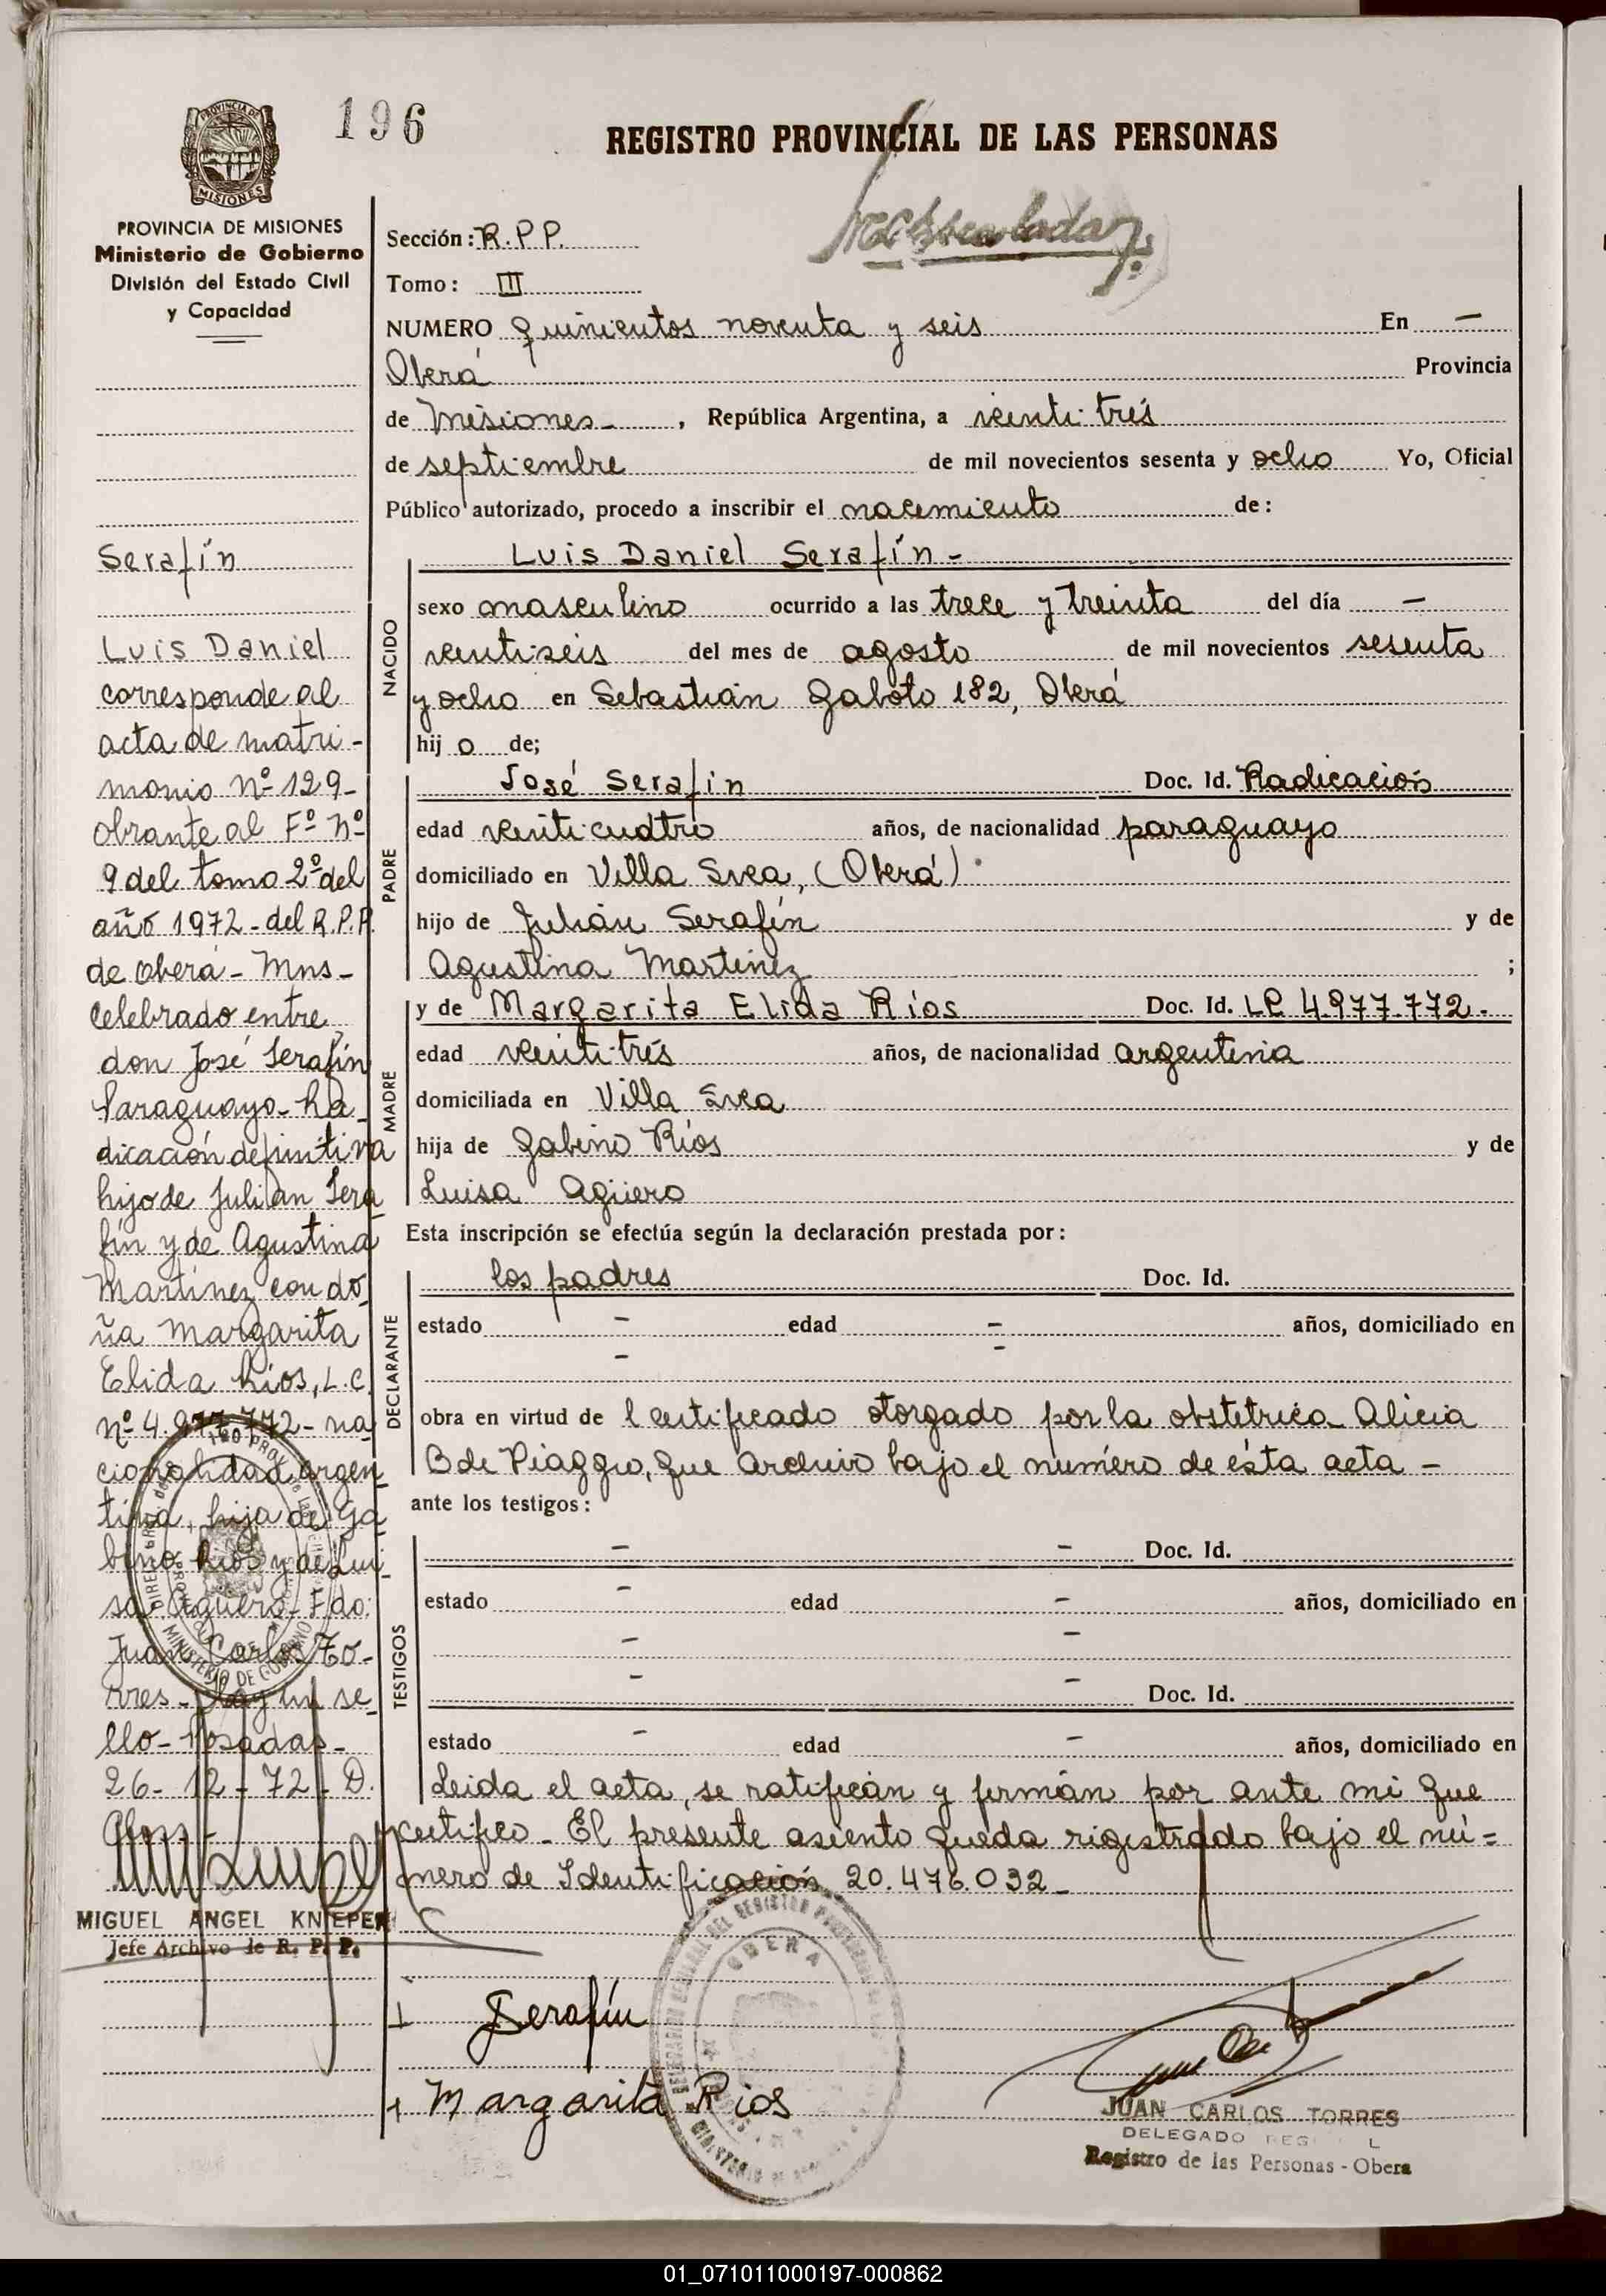 196
REGISTRO PROVINCIAL DE LAS PERSONAS
PROVINCIA DE
MISIONES
PROVINCIA DE MISIONES
Ministerio de Gobierno
División del Estado Civil
y Capacidad
Serafín
Luis Daniel
corresponde al
acta de matri-
monio Nº 129-
obrante al Fº Nº
9 del tomo 2º del
año 1972- del R.P.P.
de Oberá- Mns-
celebrado entre
don José Serafín
Paraguayo- Ra-
dicación definitiva
hijo de Julián Sera
fín y de Agustina
Martínez con do
ña Margarita
Elida Ríos, L.C.
nº 4.977.772- na
cionalidad argen
tina, hija de Ga
bino Ríos y de Lui
sa Agüero- Fdo:
Juan Carlos To-
rres- Hay un se
llo- Posadas-
26- 12- 72- D.
MIGUEL ANGEL KNIEPER
Jefe Archivo de R. P. P.
Sección: R.P.P.
Tomo: III
NUMERO quinientos noventa y seis En -
Oberá Provincia
de Misiones- , República Argentina, a veinti trés
de septiembre de mil novecientos sesenta y ocho Yo, Oficial
Público autorizado, procedo a inscribir el nacimiento de:
NACIDO
Luis Daniel Serafín -
sexo masculino ocurrido a las trece y treinta del día -
veintiseis del mes de agosto de mil novecientos sesenta
y ocho en Sebastián Gaboto 182, Oberá
hij o de;
PADRE
José Serafín Doc. Id. Radicación
edad veinticuatro años, de nacionalidad paraguayo
domiciliado en Villa Svea, (Oberá)
hijo de Julián Serafín y de
Agustina Martínez ;
MADRE
y de Margarita Elida Ríos Doc. Id. LC 4.977.772.
edad veinti trés años, de nacionalidad argentina
domiciliada en Villa Svea
hija de Gabino Ríos y de
Luisa Agüero
Esta inscripción se efectúa según la declaración prestada por:
DECLARANTE
los padres Doc. Id.
estado - edad - años, domiciliado en
- -
obra en virtud de l certificado otorgado por la obstétrica Alicia
B de Piaggio, que archivo bajo el número de ésta acta -
ante los testigos:
TESTIGOS
- - Doc. Id.
estado - edad - años, domiciliado en
- -
- - Doc. Id.
estado - edad - años, domiciliado en
Leida el acta, se ratifican y firman por ante mi que
certifico- El presente asiento queda rigistrado bajo el nú=
mero de Identificación 20.476.032-
OBERA
Serafín
Margarita Rios
JUAN CARLOS TORRES
DELEGADO
Registro de las Personas - Obera
01_071011000197-000862